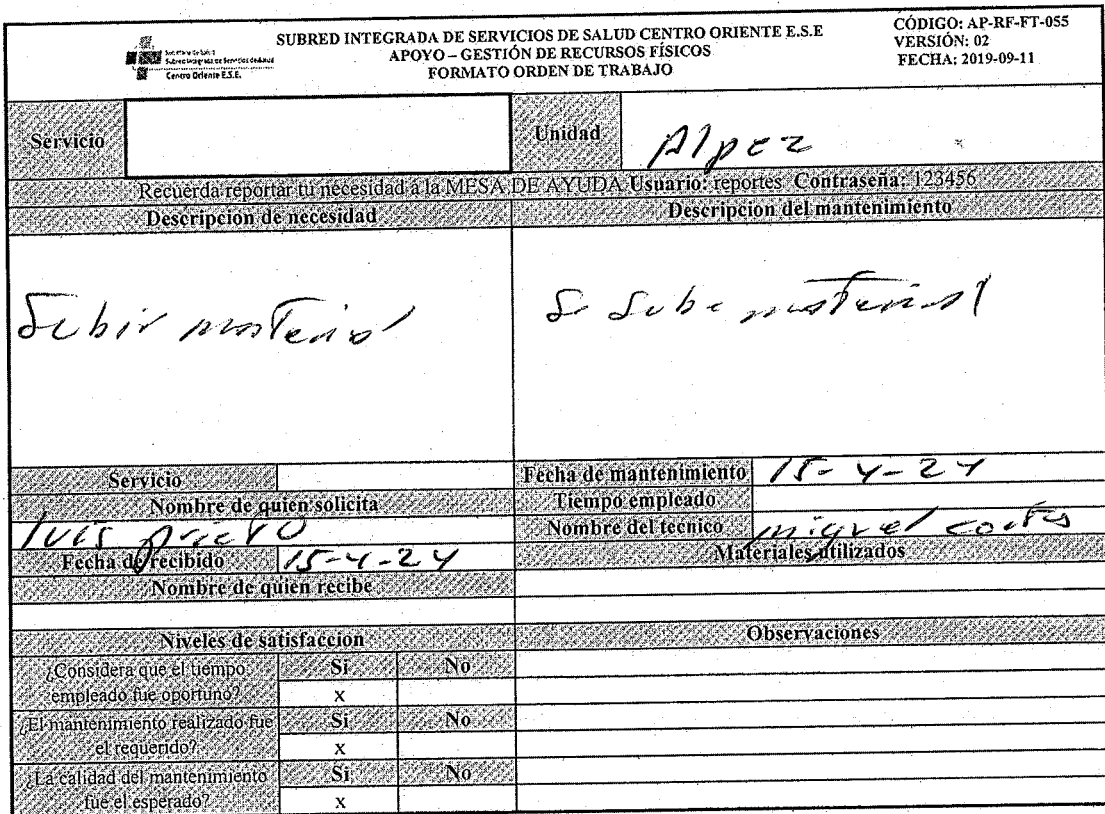 Secretaría de Salud
Subred Integrada de Servicios de Salud
Centro Oriente E.S.E.
SUBRED INTEGRADA DE SERVICIOS DE SALUD CENTRO ORIENTE E.S.E
APOYO – GESTIÓN DE RECURSOS FÍSICOS
FORMATO ORDEN DE TRABAJO
CÓDIGO: AP-RF-FT-055
VERSIÓN: 02
FECHA: 2019-09-11
Servicio
Unidad Alpez
Recuerda reportar tu necesidad a la MESA DE AYUDA Usuario: reportes Contraseña: 123456
Descripcion de necesidad
Descripcion del mantenimiento
Subir material
Se sube material
Servicio
Fecha de mantenimiento 15-4-24
Nombre de quien solicita
Tiempo empleado
luis prieto
Nombre del tecnico miguel cortes
Fecha de recibido 15-4-24
Materiales utilizados
Nombre de quien recibe
Niveles de satisfaccion
Observaciones
¿Considera que el tiempo empleado fue oportuno? Si No
x
¿El mantenimiento realizado fue el requerido? Si No
x
¿La calidad del mantenimiento fue el esperado? Si No
x